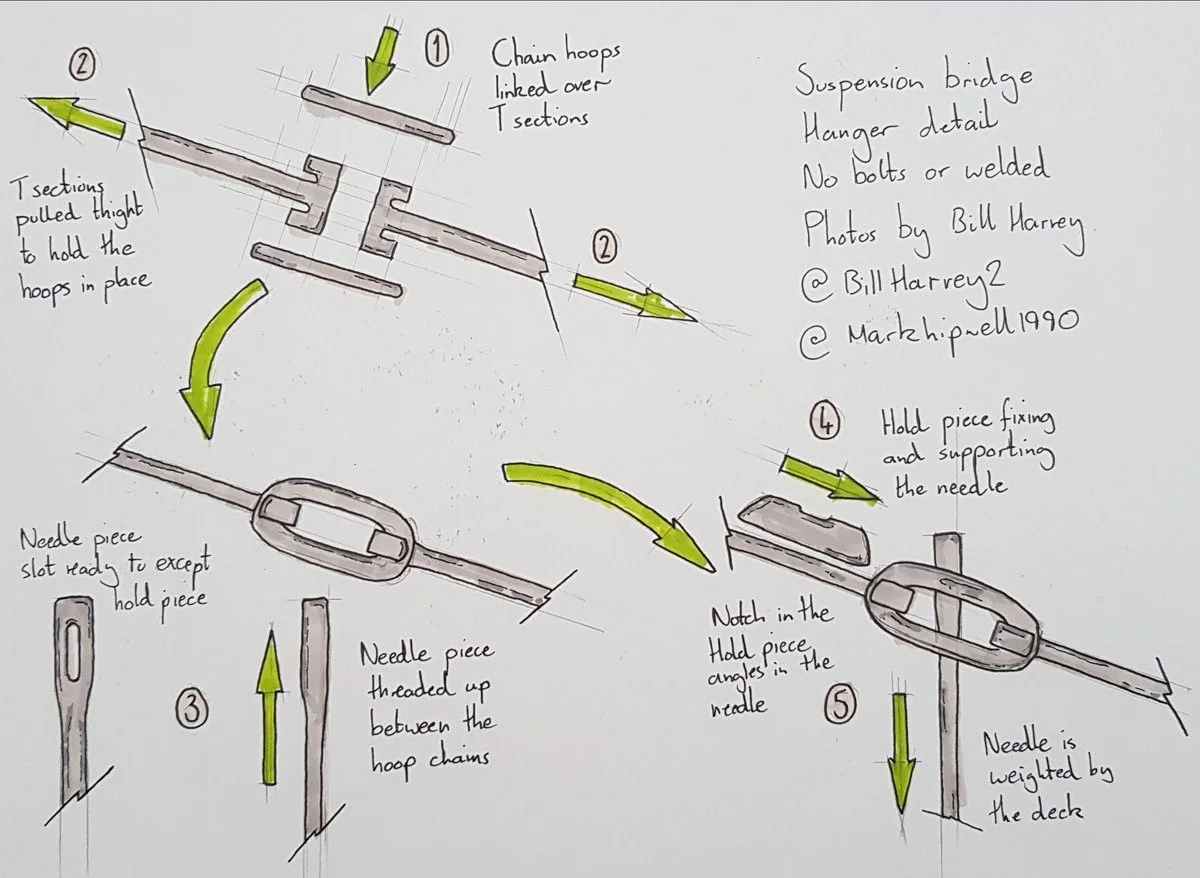 ①
Chain hoops
linked over
T sections
②
T sections
pulled thight
to hold the
hoops in place
②
Suspension bridge
Hanger detail
No bolts or welded
Photos by Bill Harvey.
@ BillHarvey2
@ Markhipwell1990
Needle piece
slot ready to except
hold piece
③
Needle piece
threaded up
between the
hoop chains
④
Hold piece fixing
and supporting
the needle
Notch in the
Hold piece
angles in the
needle
⑤
Needle is
weighted by
the deck